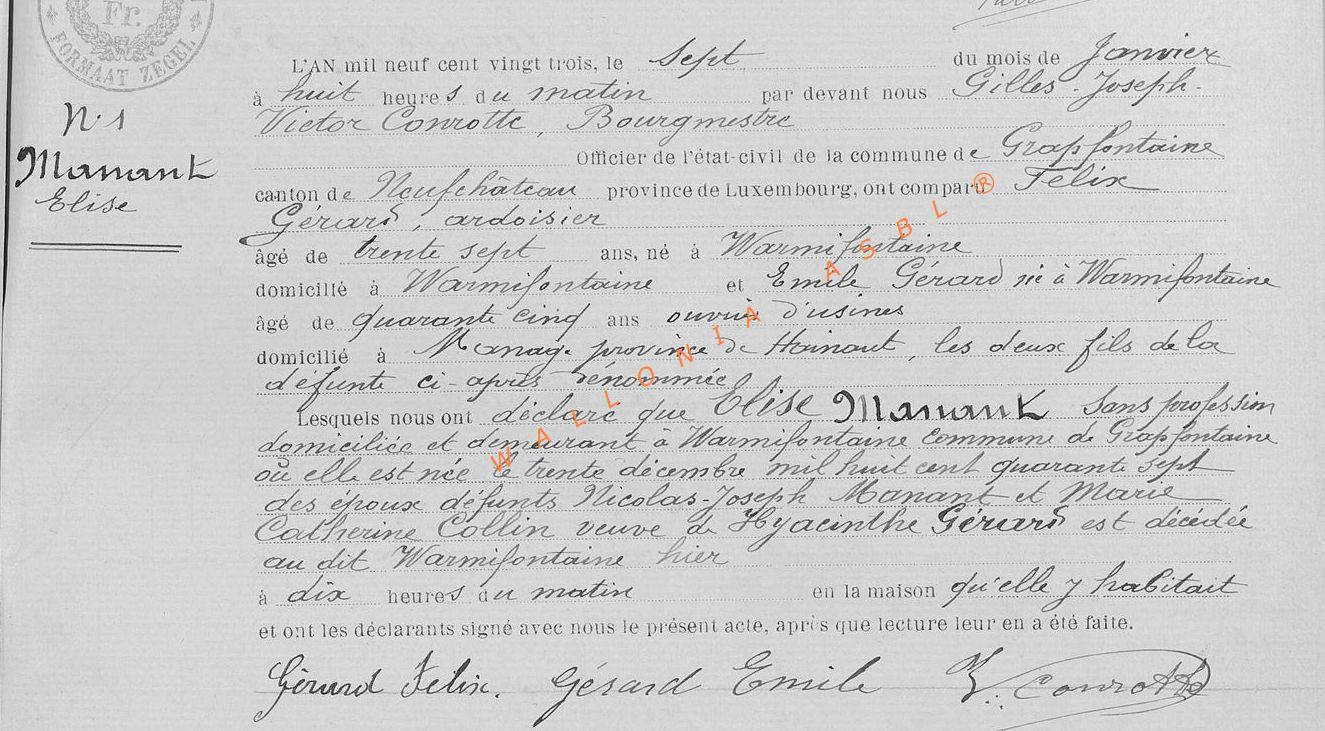 Fr.
FORMAAT ZEGEL
N. 1
Manant
Elise
L'AN mil neuf cent vingt trois, le sept du mois de Janvier
à huit heures du matin par devant nous Gilles-Joseph-
Victor Conrotte, Bourgmestre
Officier de l'état-civil de la commune de Grapfontaine
canton de Neufchâteau province de Luxembourg, ont comparu Felix
Gérard, ardoisier
âgé de trente sept ans, né à Warmifontaine
domicilié à Warmifontaine et Emile Gérard né à Warmifontaine
âgé de quarante cinq ans ouvrier d'usines
domicilié à Manage province de Hainaut, les deux fils de la
défunte ci-après dénommée
Lesquels nous ont déclaré que Elise Manant sans profession
domiciliée et demeurant à Warmifontaine commune de Grapfontaine
où elle est née le trente décembre mil huit cent quarante sept
des époux défunts Nicolas-Joseph Manant et Marie
Catherine Collin veuve de Hyacinthe Gérard est décédée
au dit Warmifontaine hier
à dix heures du matin en la maison qu'elle y habitait
et ont les déclarants signé avec nous le présent acte, après que lecture leur en a été faite.
Gérard Felix. Gérard Emile V. Conrotte
WALLONIA ASBL ®